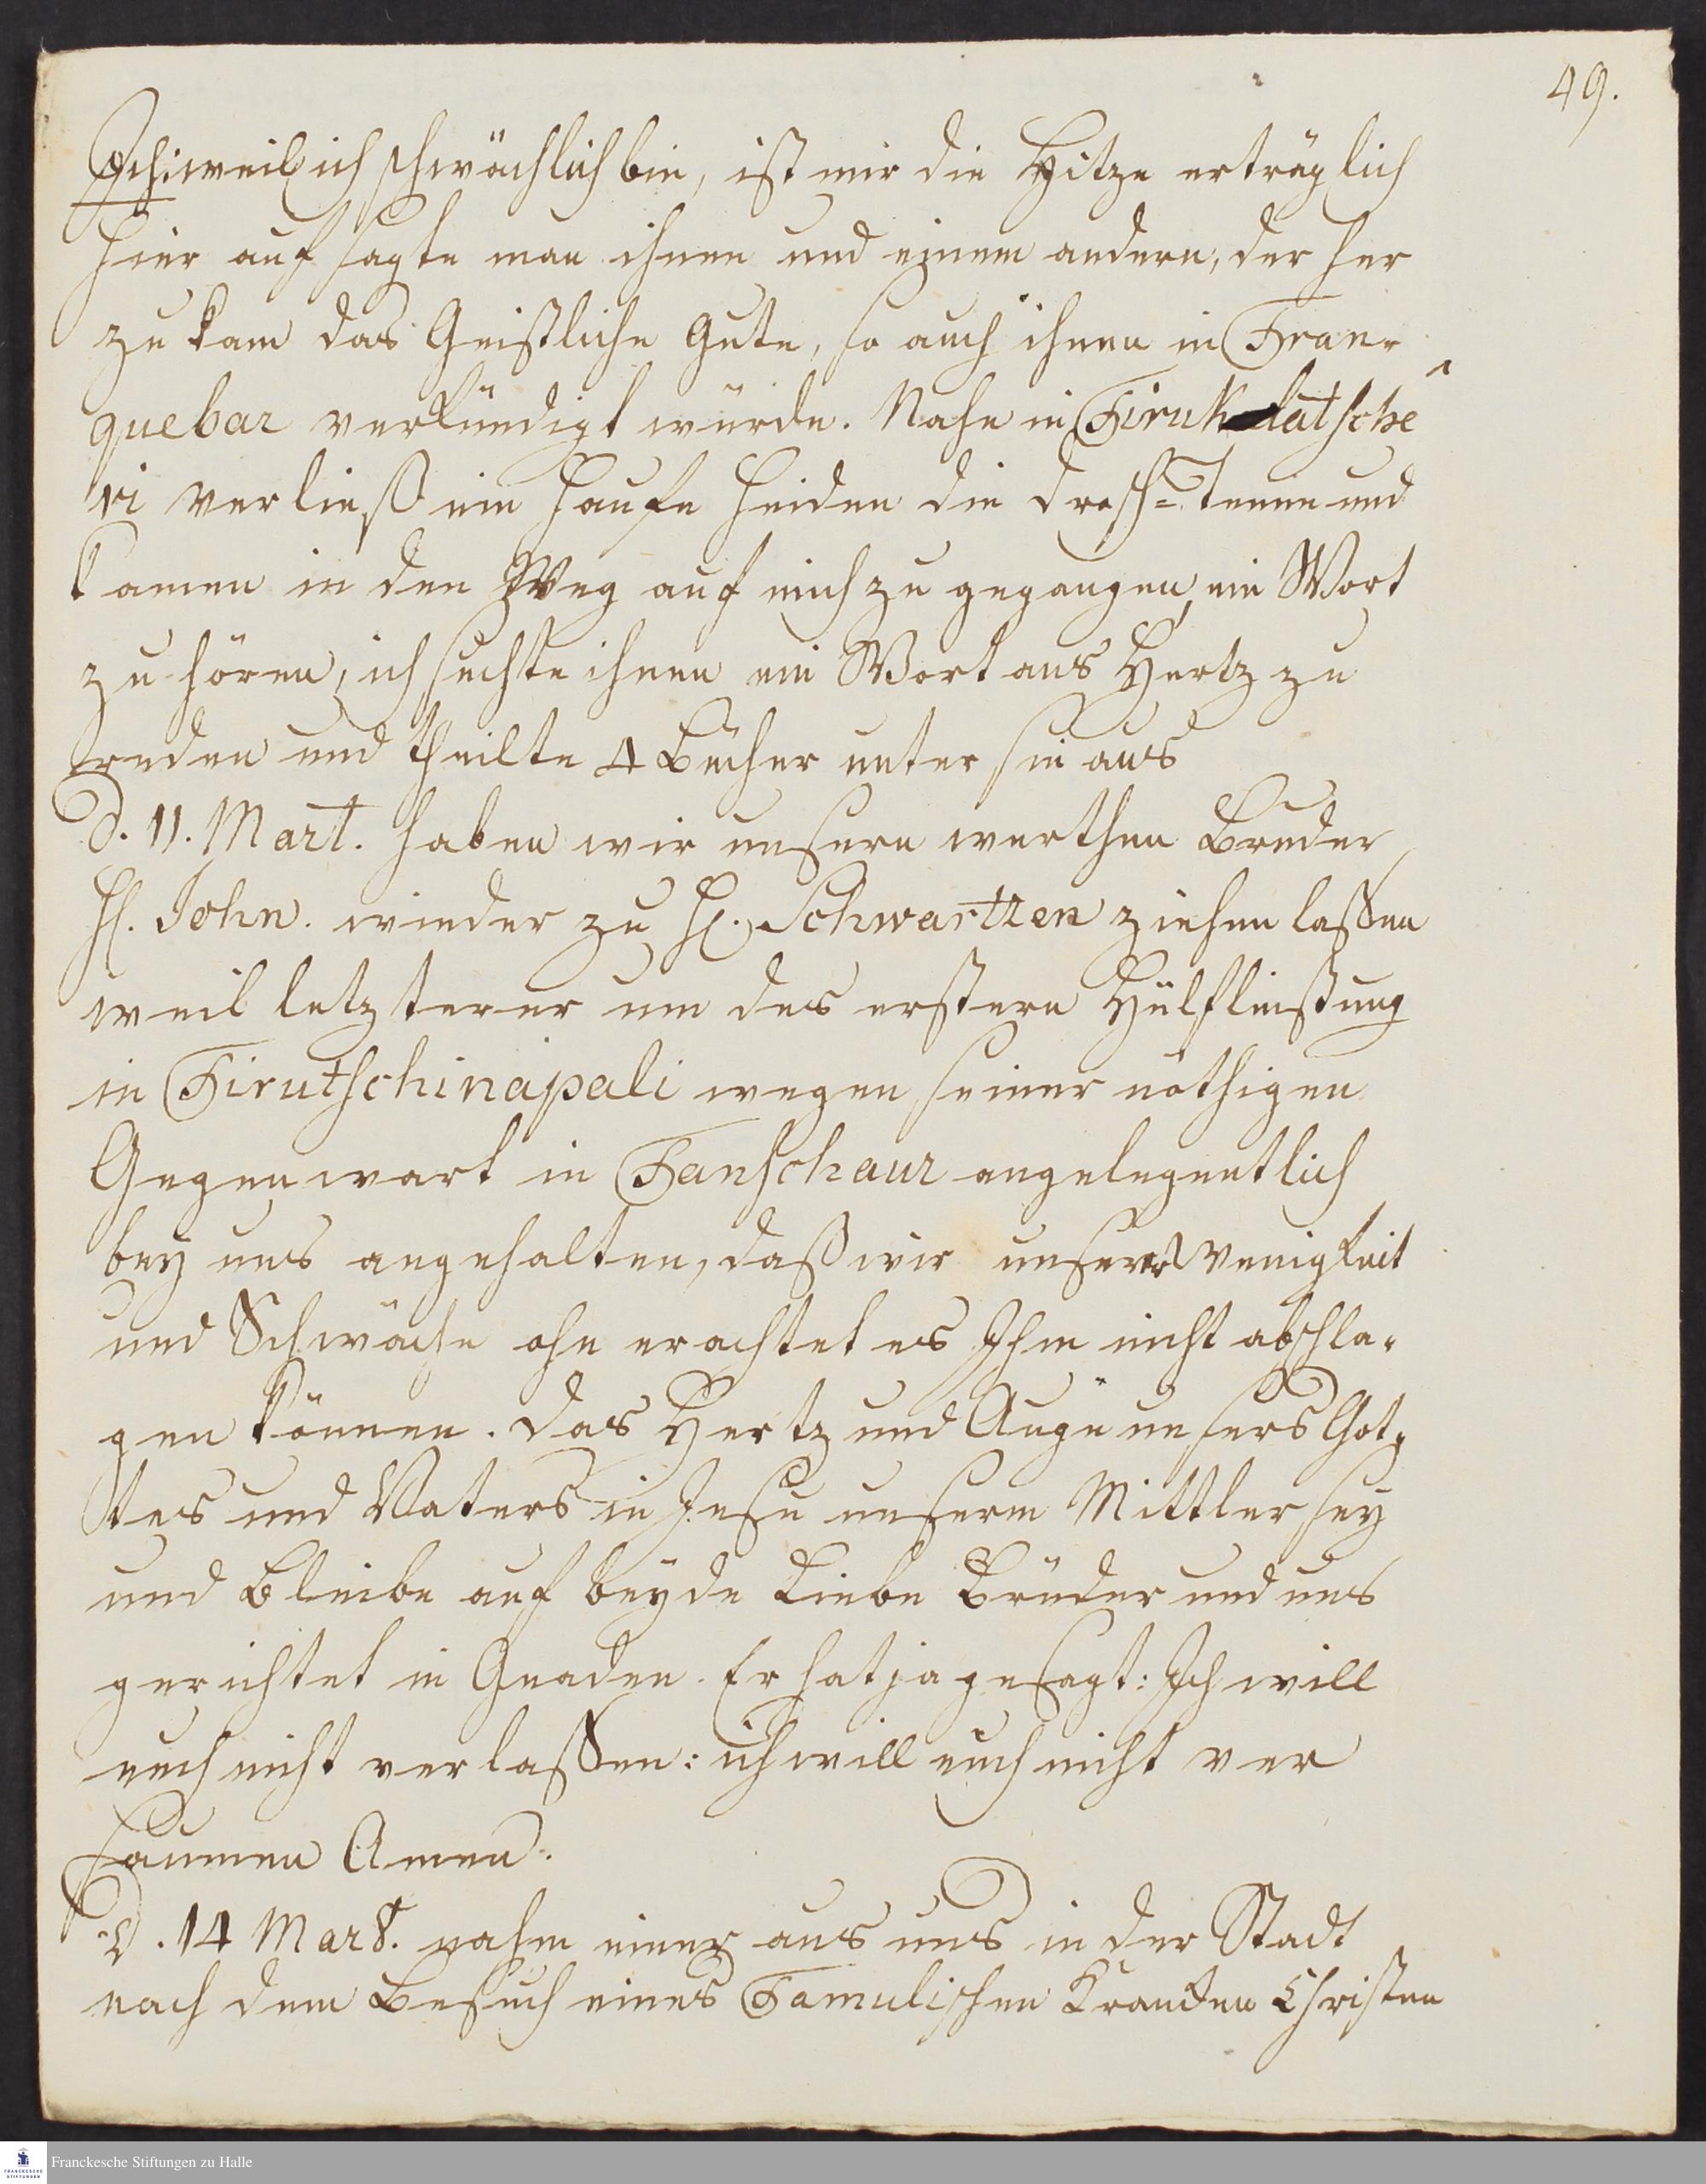 49.
Ich: weil ich schwächlich bin, ist mir die Hitze erträglich
Hier auf sagte man ihnen und einem andern, der her
zu kam das Geistliche Gute, so auch ihnen in Tran-
quebar verkündigt würde. Nahe in Tirukatsche
ri verließ ein Haufe Heiden die Dresch-Tenne und
kamen in den Weg auf mich zu gegangen, ein Wort
zu hören, ich suchte ihnen ein Wort ans Hertz zu
reden und theilte 4 Bücher unter sie aus
d. 11. Mart. haben wir unsern werthen Bruder
H. John. wieder zu H. Schwartzen ziehen laßen
weil letzterer um des erstern Hülfleistung
in Tirutschinapali wegen seiner nöthigen
Gegenwart in Tanschaur angelegentlich
bey uns angehalten, daß wir unserer Wenigkeit
und Schwäche ohn erachtet es Ihm nicht abschla-
gen können. Das Hertz und Auge unsers Got-
tes und Vaters in Jesu unserm Mittler sey
und bleibe auf beyde Liebe Brüder und uns
gerichtet in Gnaden. Er hat ja gesagt: Ich will
euch nicht verlaßen: ich will euch nicht ver
säumen Amen.
D. 14 Mart. nahm einer aus uns in der Stadt
nach dem Besuch eines Tamulischen Krancken Christen
Franckesche Stiftungen zu Halle
FRANCKESCHE STIFTUNGEN